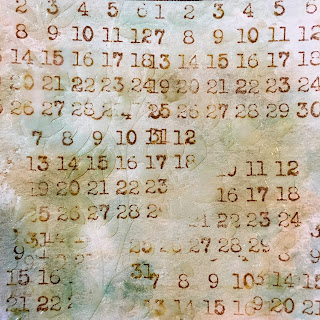 2 3 4 5 6 1 2 3 4 5 6
8 9 10 11 12 7 8 9 10 11 12
14 15 16 17 18 13 14 15 16 17 18
20 21 22 23 24 19 20 21 22 23 24
26 27 28 25 26 27 28 29 30
7 8 9 10 11 12 31
13 14 15 16 17 18 10 11 12
19 20 21 22 23 16 17 18
25 26 27 28 29 21 22 23 24
31 14 28 29 30
9 8
15 16 31 7 8 9 10
21 22 13 14 15 16 9 20 21